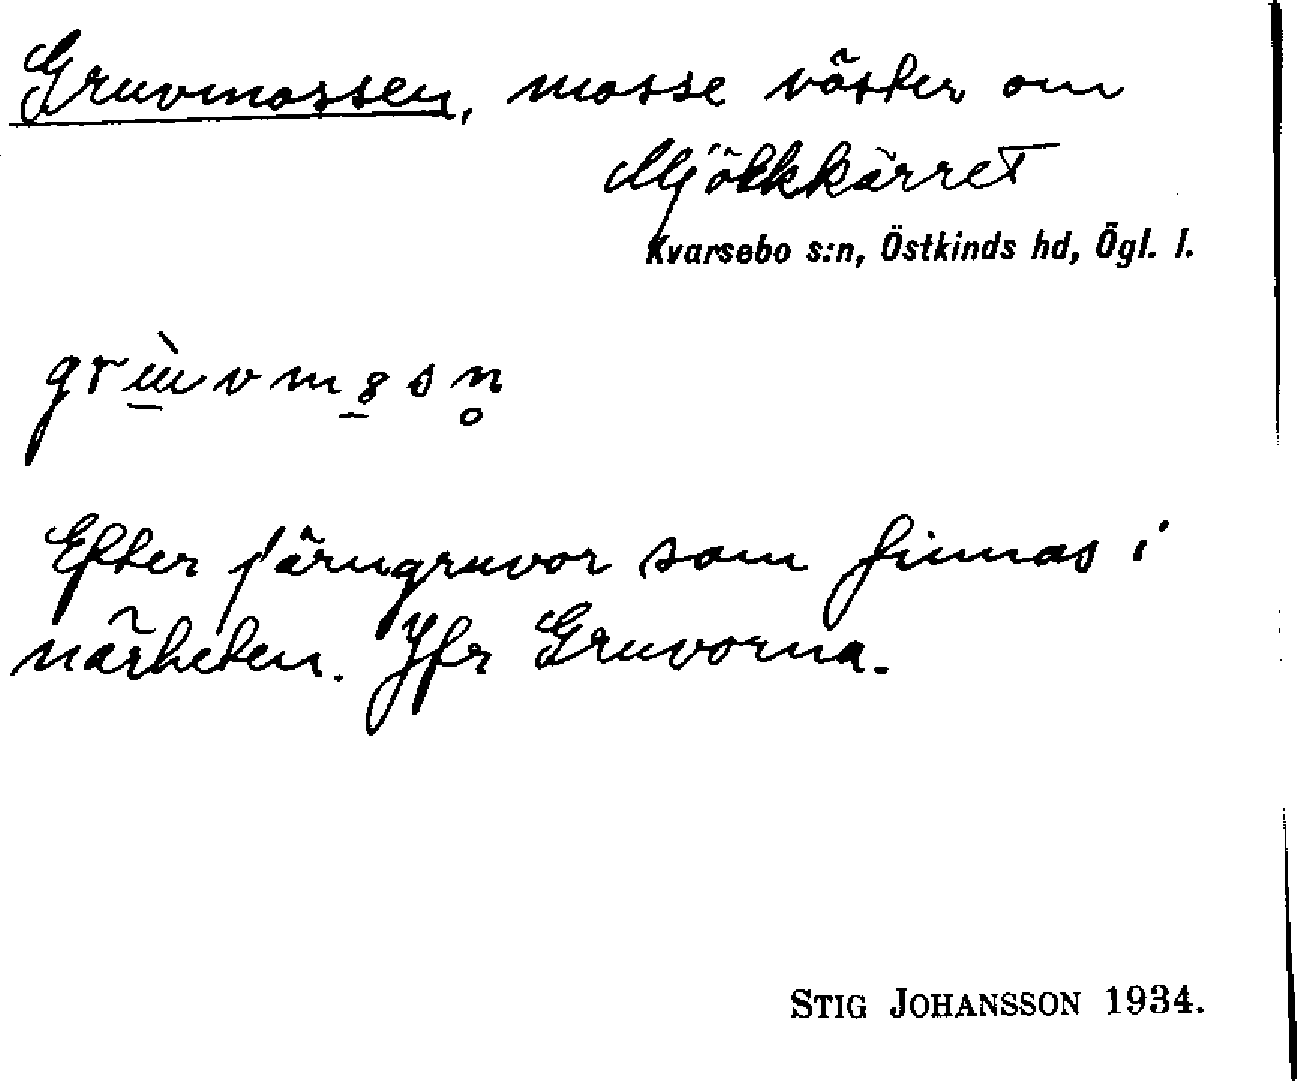 Gruvmossen, mosse väster om
Mjölkkärret
Kvarsebo s:n, Östkinds hd, Ögl. l.
Efter järngruvor som finnas i
närheten. Jfr Gruvorna.
STIG JOHANSSON 1934.